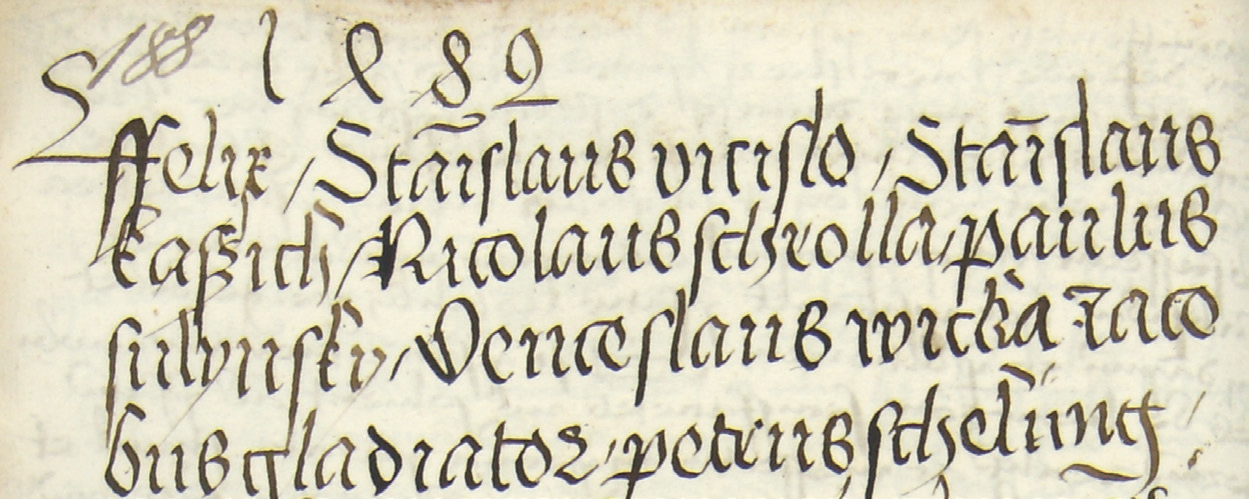 188 1482
ffelix / Stāislaus vitislo / Stāislaus
kaßich / Nicolaus scholla / paulus
sulynsky / Venceslaus wicka Jaco
bus gladiator / petrus scheling /